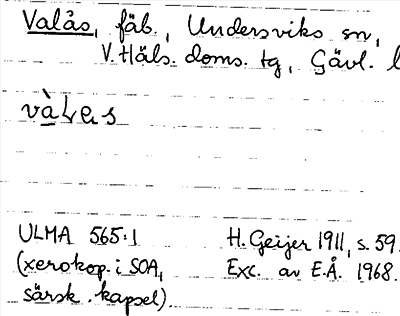 Valås, fäb., Undersviks sn,
V. Häls. doms. tg, Gävl. l
ULMA 565:1 H. Geijer 1911, s. 59.
(xerokop. i SOA, Exc. av E.Å. 1968.
särsk. kapsel).